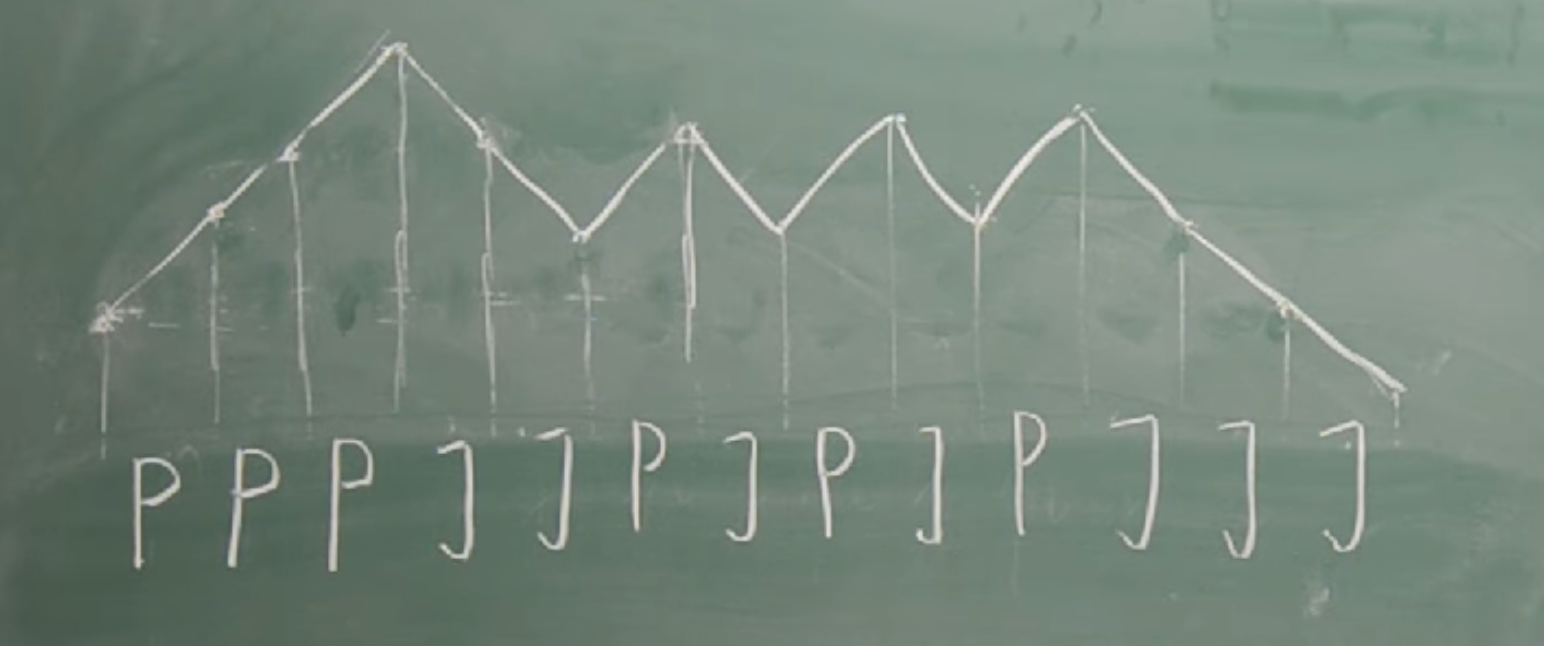 P P P J J P J P J P J J J